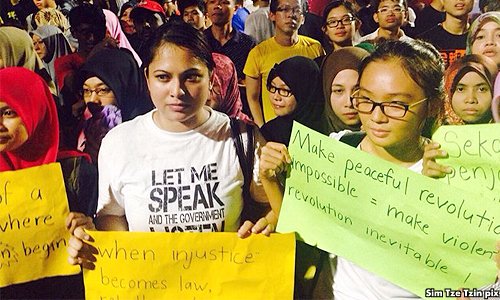 of a
where
begin
LET ME
SPEAK
AND THE GOVERNMENT
LISTEN
when injustice
becomes law,
Make peaceful revolution
impossible = make violent
revolution inevitable!
Seko
penj
Sim Tze Tzin pix